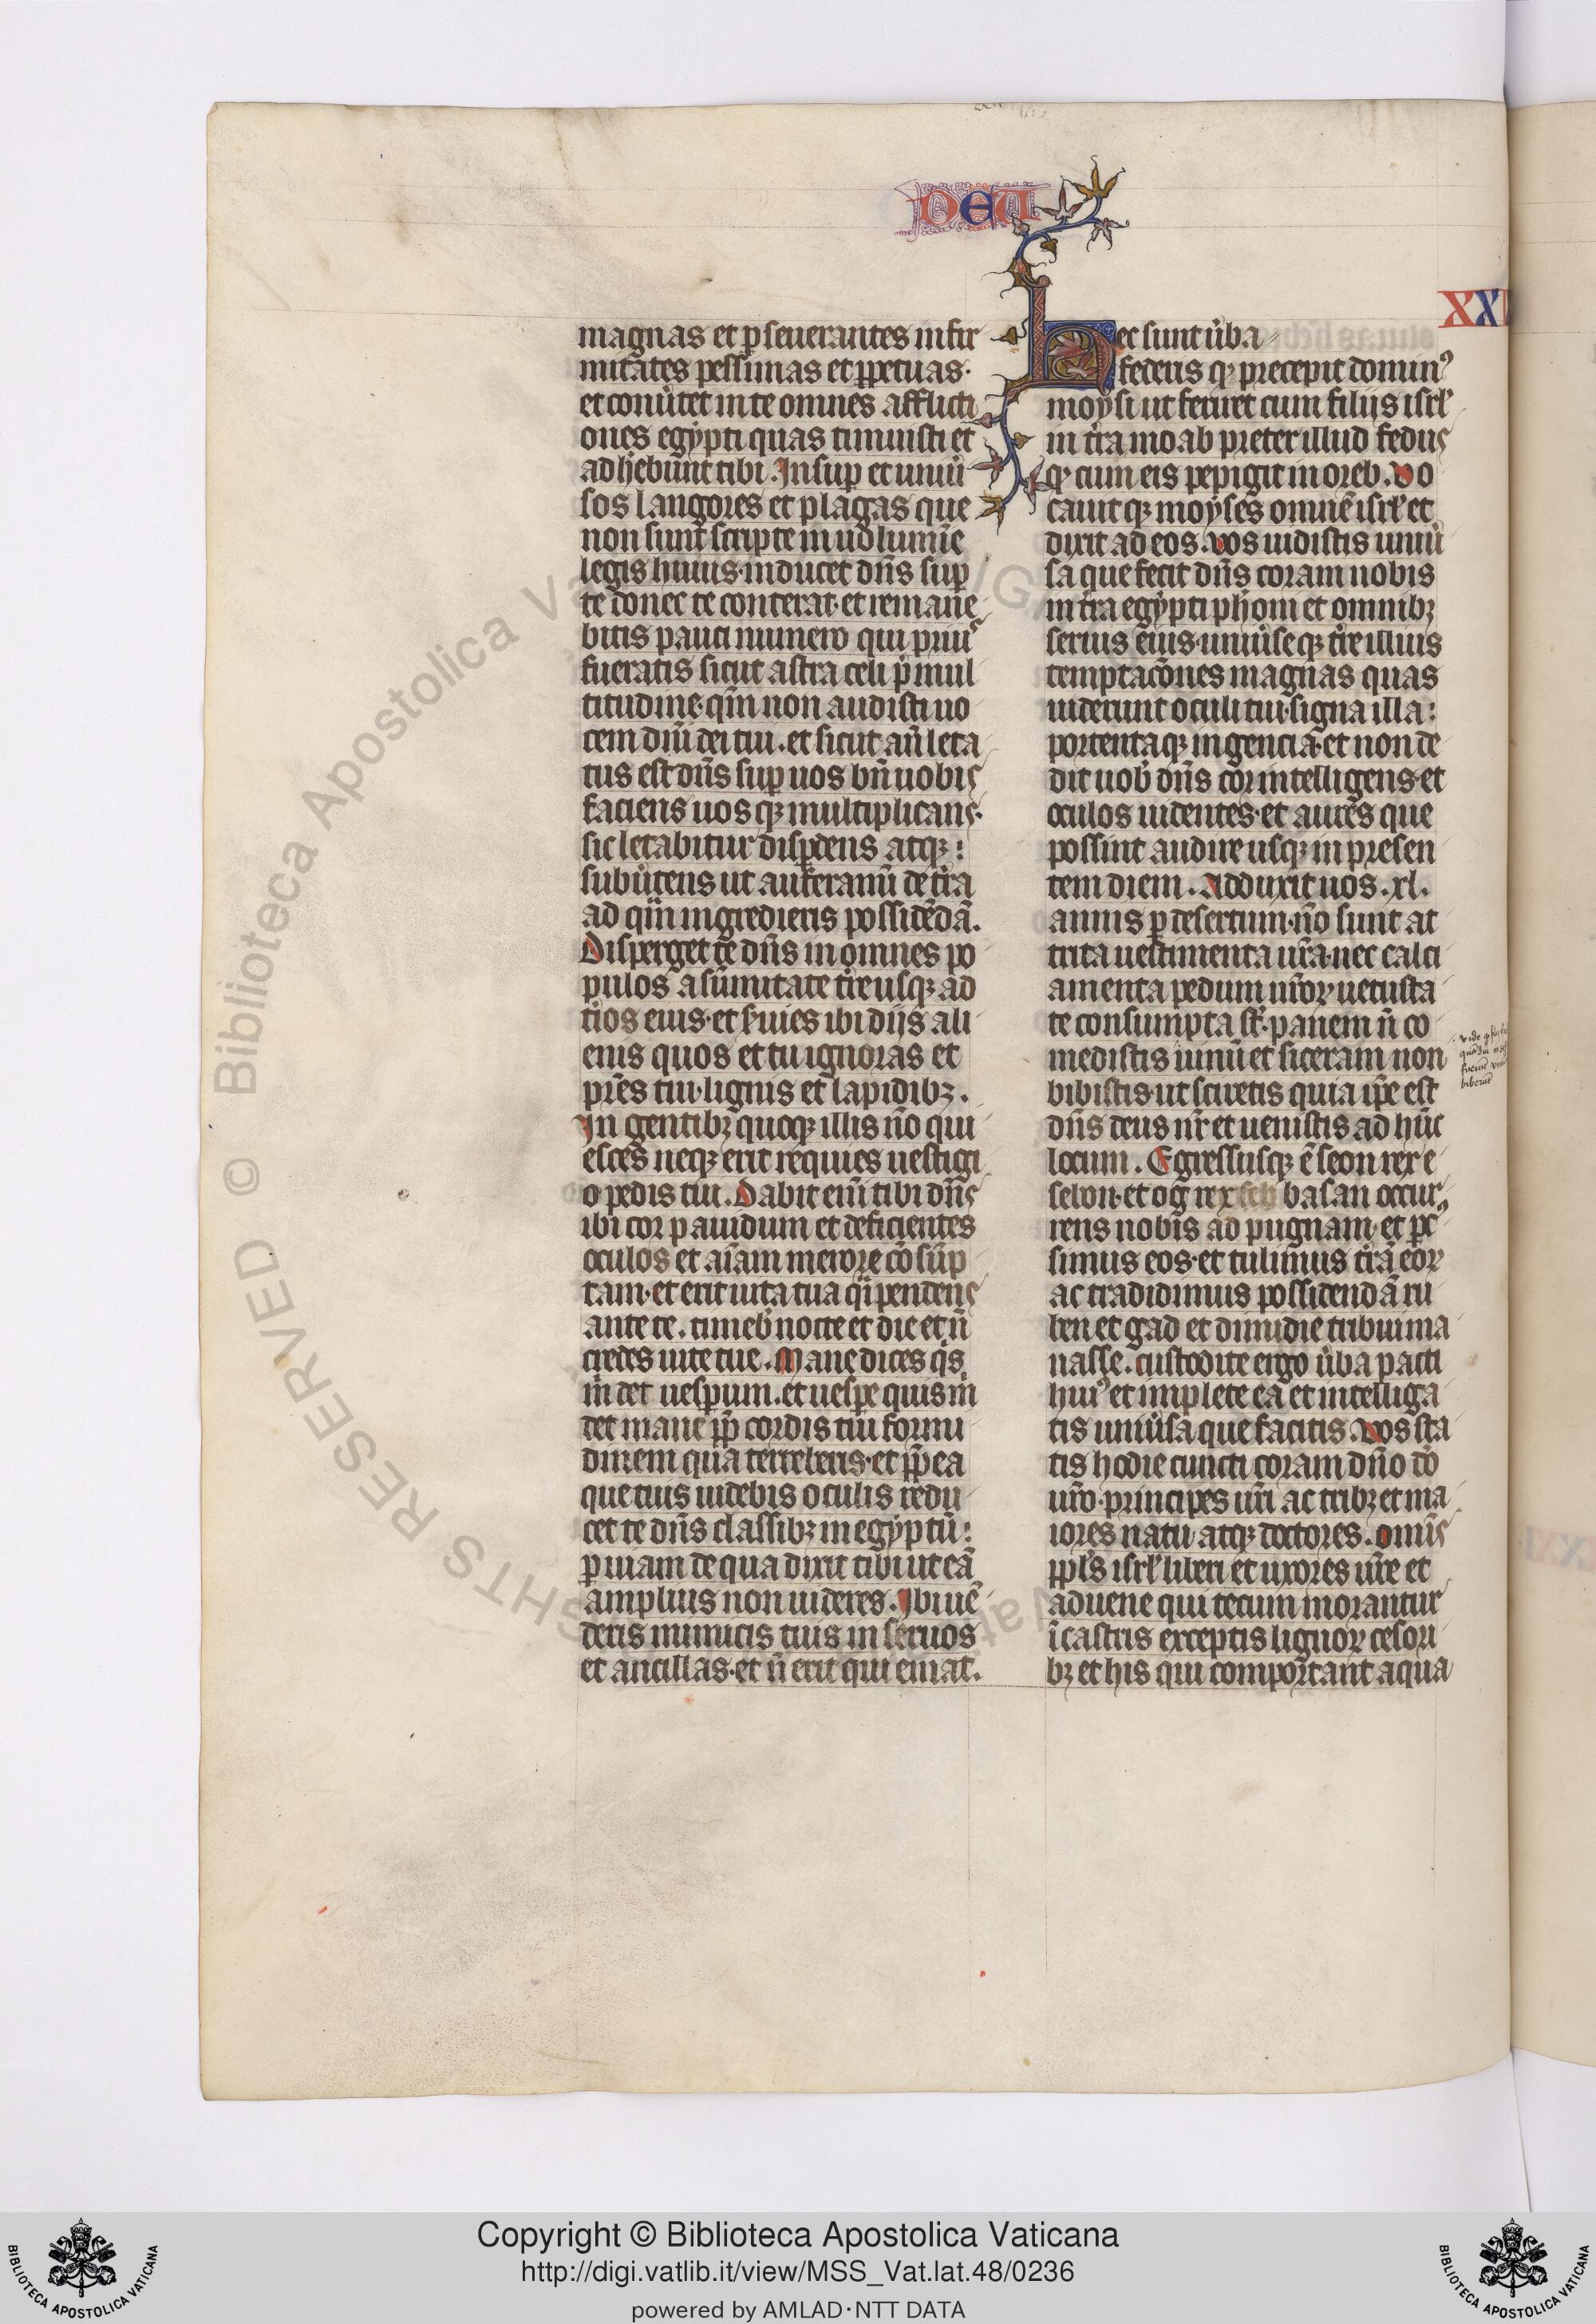 DEU
magnas et ꝑseuerantes infir
mitates pessimas et ꝑpetuas·
et conũtet in te omnes afflicti
ones egẏpti quas timuisti et
adħebunt tibi. Insuꝑ et uniũ
sos langores et plagas que
non sunt scripte in uolumĩe
legis huius·inducet dñs suꝑ
te donec te conterat·et remane
bitis pauci numero qui priuˢ
fueratis sicut astra celi p̃ mul
titudine·qm̃ non audisti uo
cem dñi dei tui. et sicut añ leta
tus est dñs suꝑ uos bñ uobis
faciens uosqꝫ multiplicans·
sic letabitur disꝑdens atqꝫ:
subũtens ut auferamĩ de t̃ra
ad qm̃ ingredieris possidẽdã.
Disperget te dñs in omnes po
pulos a sũmitate t̃re usqꝫ ad
t̃ios eius·et ẜuies ibi diis ali
enis quos et tu ignoras et
pr̃es tui·lignis et lapidibꝫ.
In gentibꝫ quoqꝫ illis ño qui
esces neqꝫ erit requies uestigi
o pedis tui. Dabit eñi tibi dñs
ibi cor pauidum et deficientes
oculos et aĩam merore cõsũp
tam·et erit uita tua qĩ pendens
ante te. timeb̾ nocte et die et ñ
credes uite tue. Mane dices qis
m̃ det uesꝑum. et uesꝑe quis m̃
det mane ꝓp̃ cordis tui formi
dinem qua terreberis·et ꝓp̃ ea
que tuis uidebis oculis redu
cet te dñs classibꝫ in egẏptũ:
ꝑ uiam de qua dixit tibi ut eã
amplius non uideres. Ibi uẽ
deris inimicis tuis in seruos
et ancillas·et ñ erit qui emat.
XXI
Hec sunt ũba
federis qꝫ precepit dominꝰ
moẏsi ut feriret cum filiis isrl̃
in t̃ra moab preter illud fedus
qꝫ cum eis pepigit in oreb. Vo
cauitqꝫ moẏses omnẽ isrl̃ et
dixit ad eos. Vos uidistis uniũ
sa que fecit dñs coram uobis
in t̃ra egẏpti pħoni et omnibꝫ
seruis eius·uniũseqꝫ t̃re illius
temptacõnes magnas quas
uiderunt oculi tui·signa illa:
portentaqꝫ ingencia·et non de
dit uob̾ dñs cor intelligens·et
oculos uidentes·et aures que
possint audire usqꝫ in presen
tem diem. Adduxit uos .xl.
annis ꝑ desertum·ño sunt at
trita uestimenta ur̃a·nec calci
amenta pedum ur̃oꝝ uetusta
te consumpta st̃·panem ñ co
medistis uinũ et siceram non
bibistis·ut sciretis quia ip̃e est
dñs deus ur̃ et uenistis ad hũc
locum. Egressusqꝫ ẽ seon rex e
sebon·et og rex basan occur
rens nobis ad pugnam·et ꝑcꝰ
simus eos·et tulimus t̃rã eoꝝ
ac tradidimus possidendã ru
ben et gad et dimidie tribui ma
nasse. custodite ergo ũba pacti
huiꝰ et implete ea et intelliga
tis uniũsa que facitis. Vos sta
tis hodie cuncti coram dño dõ
ur̃o·principes ur̃i ac tribꝫ et ma
iores natu atqꝫ doctores. omĩs
ppl̃s isrl̃ liberi et uxores ur̃e et
aduene qui tecum morantur
ĩ castris exceptis lignoꝝ cesori
bꝫ et his qui comportant aqua
Copyright © Biblioteca Apostolica Vaticana
http://digi.vatlib.it/view/MSS_Vat.lat.48/0236
powered by AMLAD·NTT DATA
BIBLIOTECA APOSTOLICA VATICANA
BIBLIOTECA APOSTOLICA VATICANA